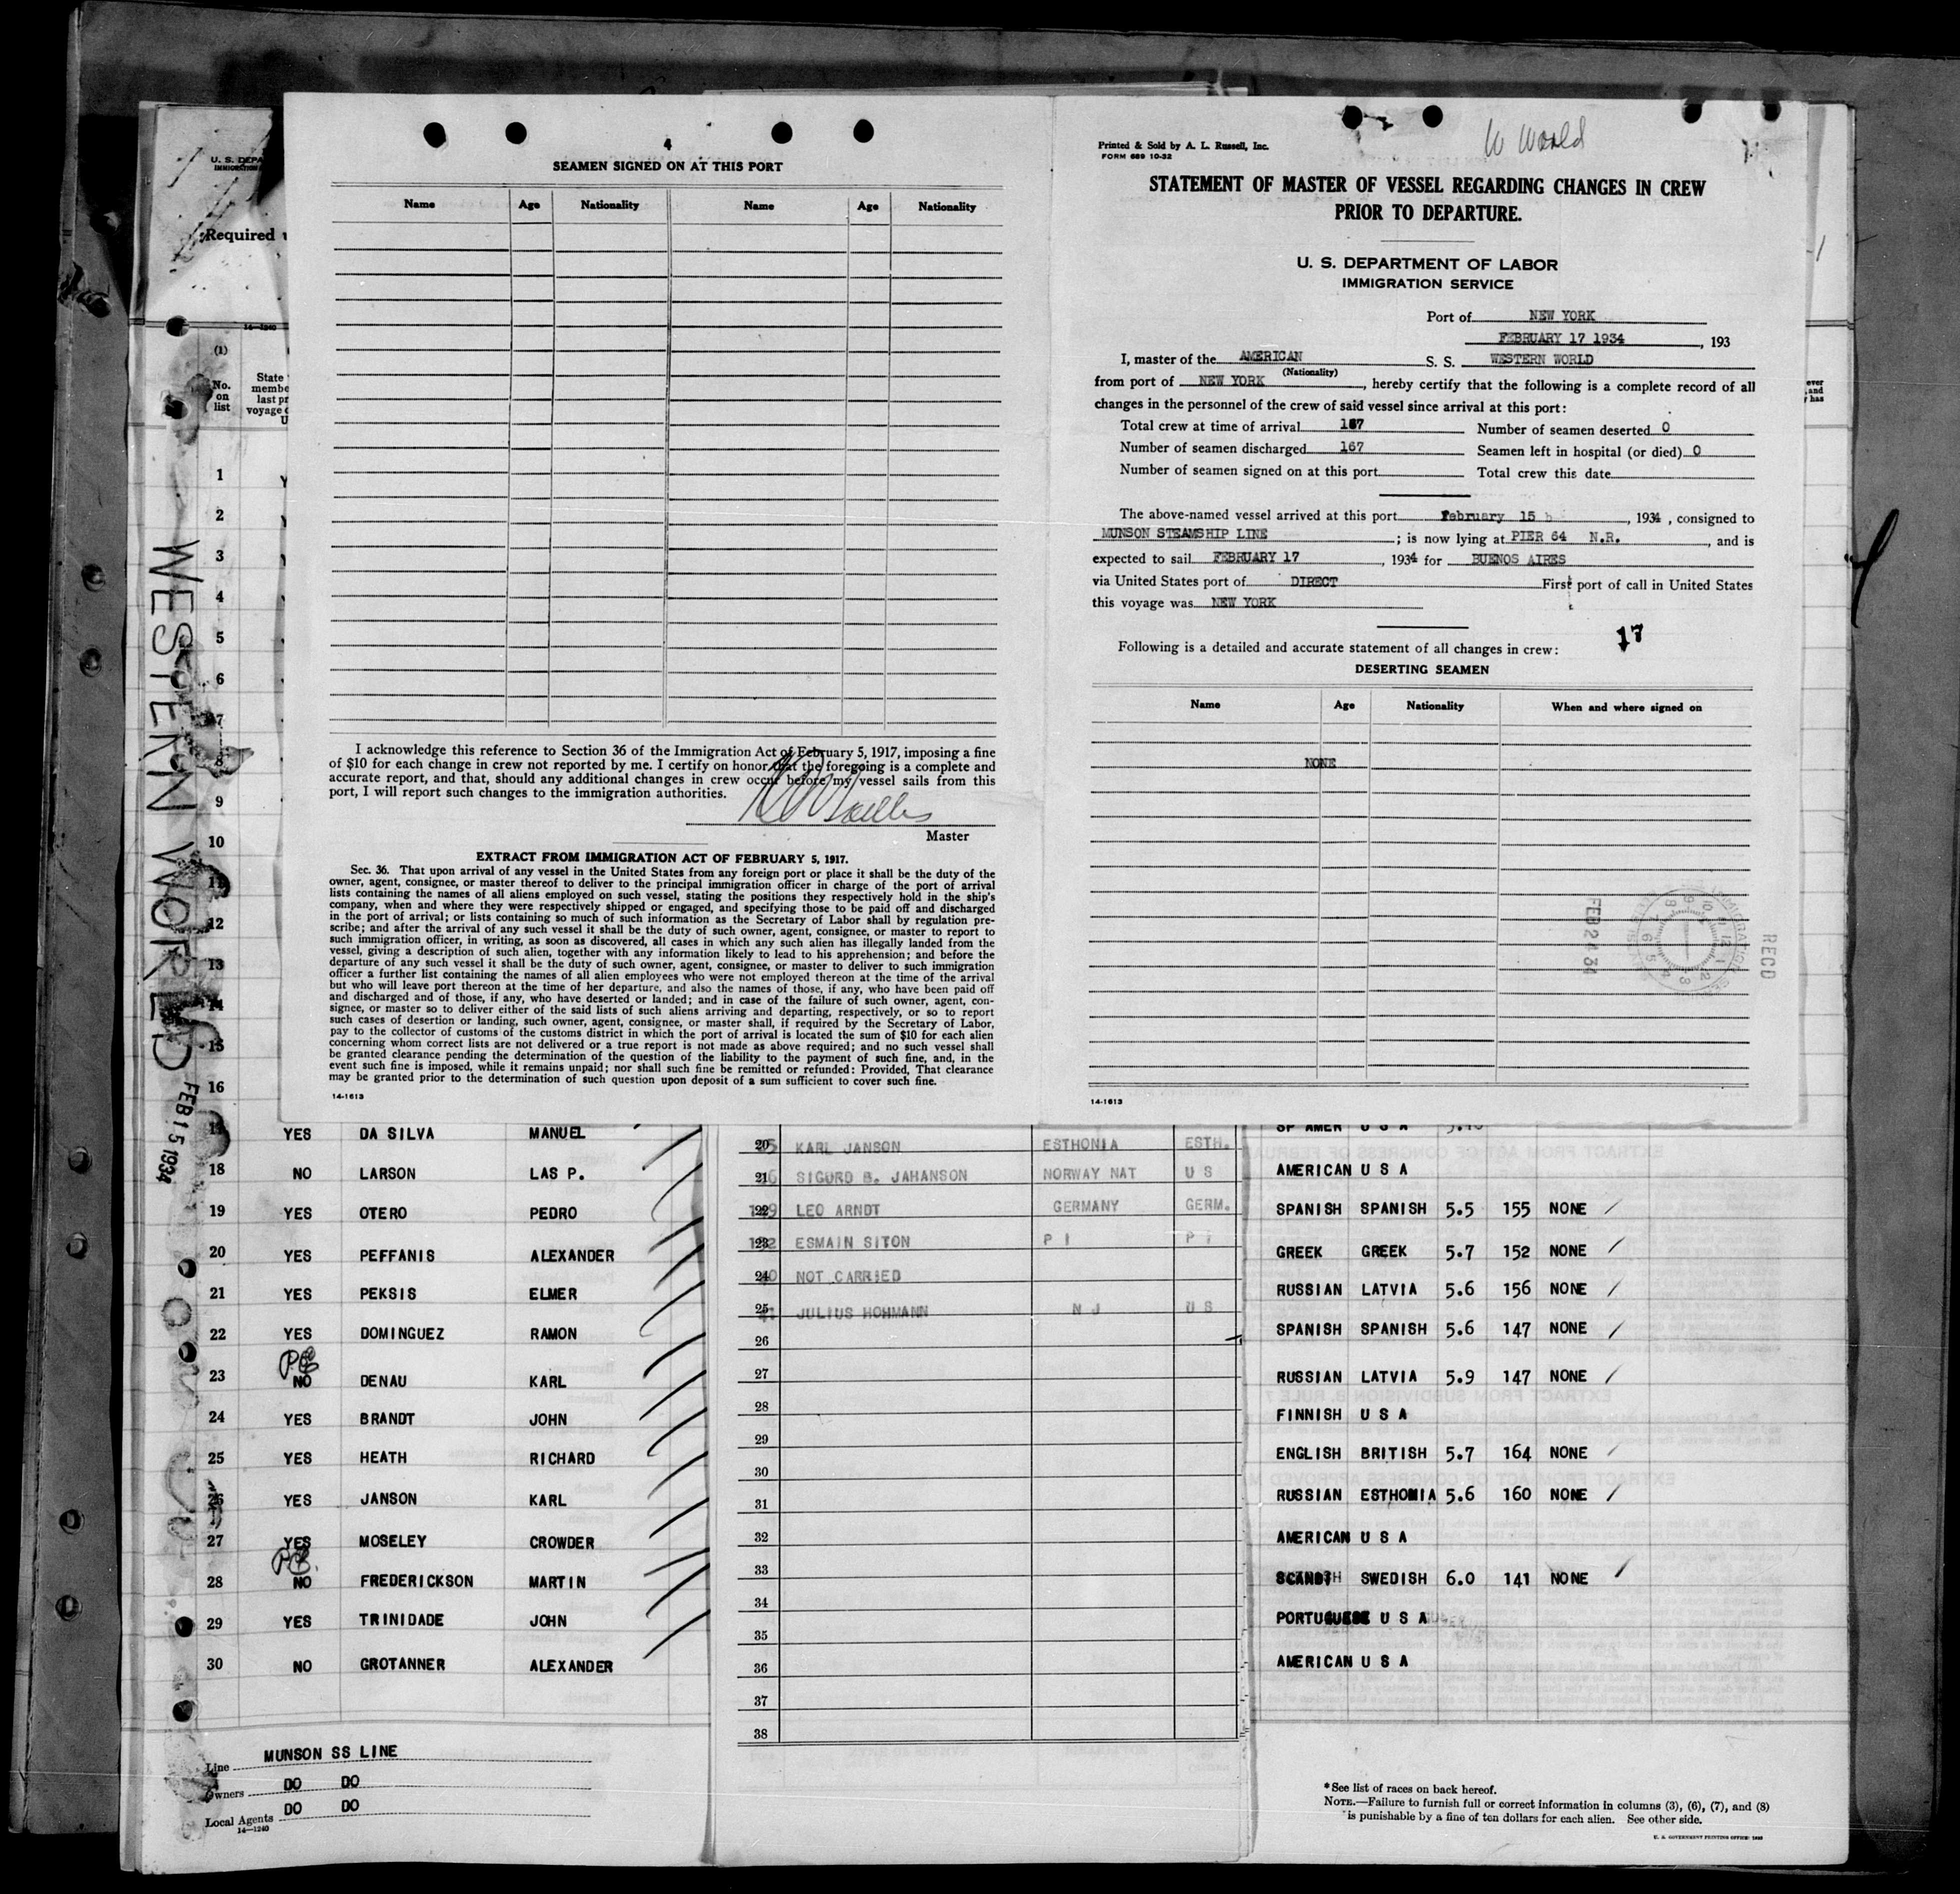 4
SEAMEN SIGNED ON AT THIS PORT
Name Age Nationality Name Age Nationality
I acknowledge this reference to Section 36 of the Immigration Act of February 5, 1917, imposing a fine
of $10 for each change in crew not reported by me. I certify on honor that the foregoing is a complete and
accurate report, and that, should any additional changes in crew occur before my vessel sails from this
port, I will report such changes to the immigration authorities.
Master
EXTRACT FROM IMMIGRATION ACT OF FEBRUARY 5, 1917.
Sec. 36. That upon arrival of any vessel in the United States from any foreign port or place it shall be the duty of the
owner, agent, consignee, or master thereof to deliver to the principal immigration officer in charge of the port of arrival
lists containing the names of all aliens employed on such vessel, stating the positions they respectively hold in the ship's
company, when and where they were respectively shipped or engaged, and specifying those to be paid off and discharged
in the port of arrival; or lists containing so much of such information as the Secretary of Labor shall by regulation pre-
scribe; and after the arrival of any such vessel it shall be the duty of such owner, agent, consignee, or master to report to
such immigration officer, in writing, as soon as discovered, all cases in which any such alien has illegally landed from the
vessel, giving a description of such alien, together with any information likely to lead to his apprehension; and before the
departure of any such vessel it shall be the duty of such owner, agent, consignee, or master to deliver to such immigration
officer a further list containing the names of all alien employees who were not employed thereon at the time of the arrival
but who will leave port thereon at the time of her departure, and also the names of those, if any, who have been paid off
and discharged and of those, if any, who have deserted or landed; and in case of the failure of such owner, agent, con-
signee, or master so to deliver either of the said lists of such aliens arriving and departing, respectively, or so to report
such cases of desertion or landing, such owner, agent, consignee, or master shall, if required by the Secretary of Labor,
pay to the collector of customs of the customs district in which the port of arrival is located the sum of $10 for each alien
concerning whom correct lists are not delivered or a true report is not made as above required; and no such vessel shall
be granted clearance pending the determination of the question of the liability to the payment of such fine, and, in the
event such fine is imposed, while it remains unpaid; nor shall such fine be remitted or refunded: Provided, That clearance
may be granted prior to the determination of such question upon deposit of a sum sufficient to cover such fine.
14-1613
W World
Printed & Sold by A. L. Russell, Inc.
FORM 689 10-32
STATEMENT OF MASTER OF VESSEL REGARDING CHANGES IN CREW
PRIOR TO DEPARTURE.
U. S. DEPARTMENT OF LABOR
IMMIGRATION SERVICE
Port of NEW YORK
FEBRUARY 17 1934, 193
I, master of the AMERICAN S. S. WESTERN WORLD
(Nationality)
from port of NEW YORK, hereby certify that the following is a complete record of all
changes in the personnel of the crew of said vessel since arrival at this port:
Total crew at time of arrival 167 Number of seamen deserted 0
Number of seamen discharged 167 Seamen left in hospital (or died) 0
Number of seamen signed on at this port Total crew this date
The above-named vessel arrived at this port February 15, 1934, consigned to
MUNSON STEAMSHIP LINE; is now lying at PIER 64 N.R., and is
expected to sail FEBRUARY 17, 1934 for BUENOS AIRES
via United States port of DIRECT First port of call in United States
this voyage was NEW YORK
17
Following is a detailed and accurate statement of all changes in crew:
DESERTING SEAMEN
Name Age Nationality When and where signed on
NONE
RECD
FEB 24 34
14-1613
U. S. DEPA
IMMIGRATION
Required
14-1240
(1)
No. on list
State
membe
last pr
voyage
U
ever
and
has
WESTERN WORLD
FEB 15 1934
1
2
3
4
5
6
7
8
9
10
11
12
13
14
15
16
YES DA SILVA MANUEL
18 NO LARSON LAS P. AMERICAN U S A
19 YES OTERO PEDRO SPANISH SPANISH 5.5 155 NONE
20 YES PEFFANIS ALEXANDER GREEK GREEK 5.7 152 NONE
21 YES PEKSIS ELMER RUSSIAN LATVIA 5.6 156 NONE
22 YES DOMINGUEZ RAMON SPANISH SPANISH 5.6 147 NONE
23 NO DENAU KARL RUSSIAN LATVIA 5.9 147 NONE
24 YES BRANDT JOHN FINNISH U S A
25 YES HEATH RICHARD ENGLISH BRITISH 5.7 164 NONE
26 YES JANSON KARL RUSSIAN ESTHONIA 5.6 160 NONE
27 YES MOSELEY CROWDER AMERICAN U S A
28 NO FREDERICKSON MARTIN SWEDISH 6.0 141 NONE
29 YES TRINIDADE JOHN PORTUGUESE U S A
30 NO GROTANNER ALEXANDER AMERICAN U S A
20 KARL JANSON ESTHONIA ESTH.
21 SIGURD B. JAHANSON NORWAY NAT U S
22 LEO ARNDT GERMANY GERM.
23 ESMAIN SITON P I P I
24 NOT CARRIED
25 JULIUS HOHMANN N J U S
26
27
28
29
30
31
32
33
34
35
36
37
38
Line MUNSON SS LINE
Owners DO DO
Local Agents DO DO
14-1240
*See list of races on back hereof.
NOTE.—Failure to furnish full or correct information in columns (3), (6), (7), and (8)
is punishable by a fine of ten dollars for each alien. See other side.
U. S. GOVERNMENT PRINTING OFFICE